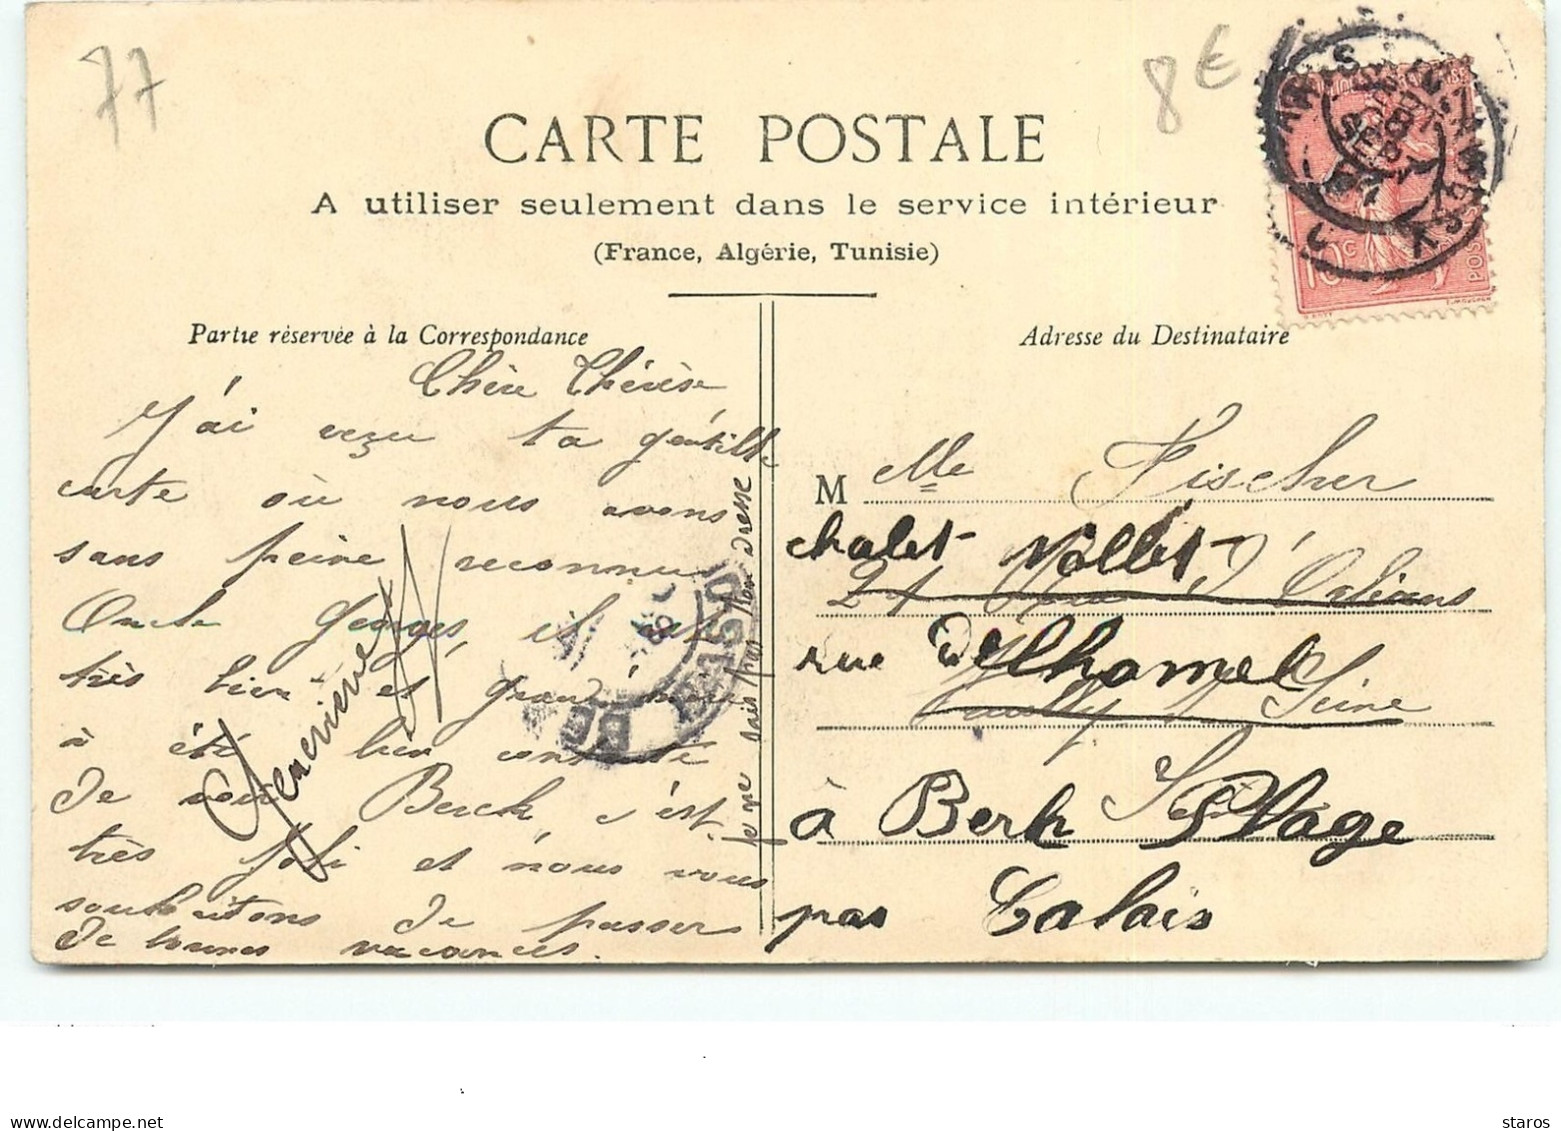 77
8€
CARTE POSTALE
A utiliser seulement dans le service intérieur
(France, Algérie, Tunisie)
Partie réservée à la Correspondance
Adresse du Destinataire
Chère Thérèse
J'ai reçu ta gentille
carte où nous avons
sans peine reconnu
Oncle Georges, il est
très bien et grand'mère
à été bien contente
de voir Berck c'est
très joli et nous vous
souhaitons de passer
de bonnes vacances.
Geneviève
je ne sais pas ton adresse
M Mlle Fischer
chalet Nollet
27 Rue d'Orléans
rue Delhomel
Neuilly s/ Seine
Seine
à Berk Plage
pas Calais
10c
POSTES
staros